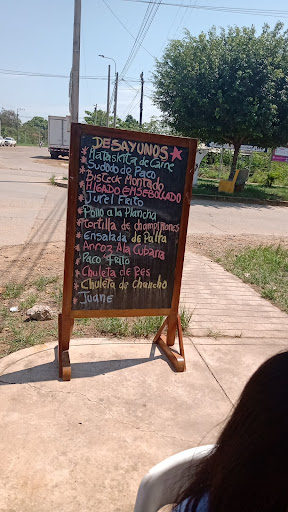 DESAYUNOS
Mataskita de Carne
Sudado de Paco
Bisteck Montado
HIGADO ENSEBOLLADO
Jurel Frito
Pollo a la Plancha
Tortilla de champiñones
Ensalada de Palta
Arroz A la Cubana
Paco Frito
Chuleta de Res
Chuleta de chancho
Juane